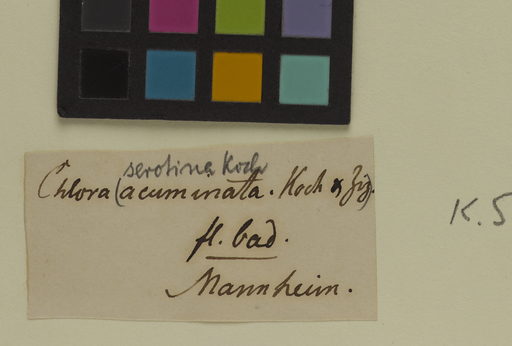 serotina Koch
Chlora (acuminata. Koch & Ziz).
fl. bad.
Mannheim.
K. S